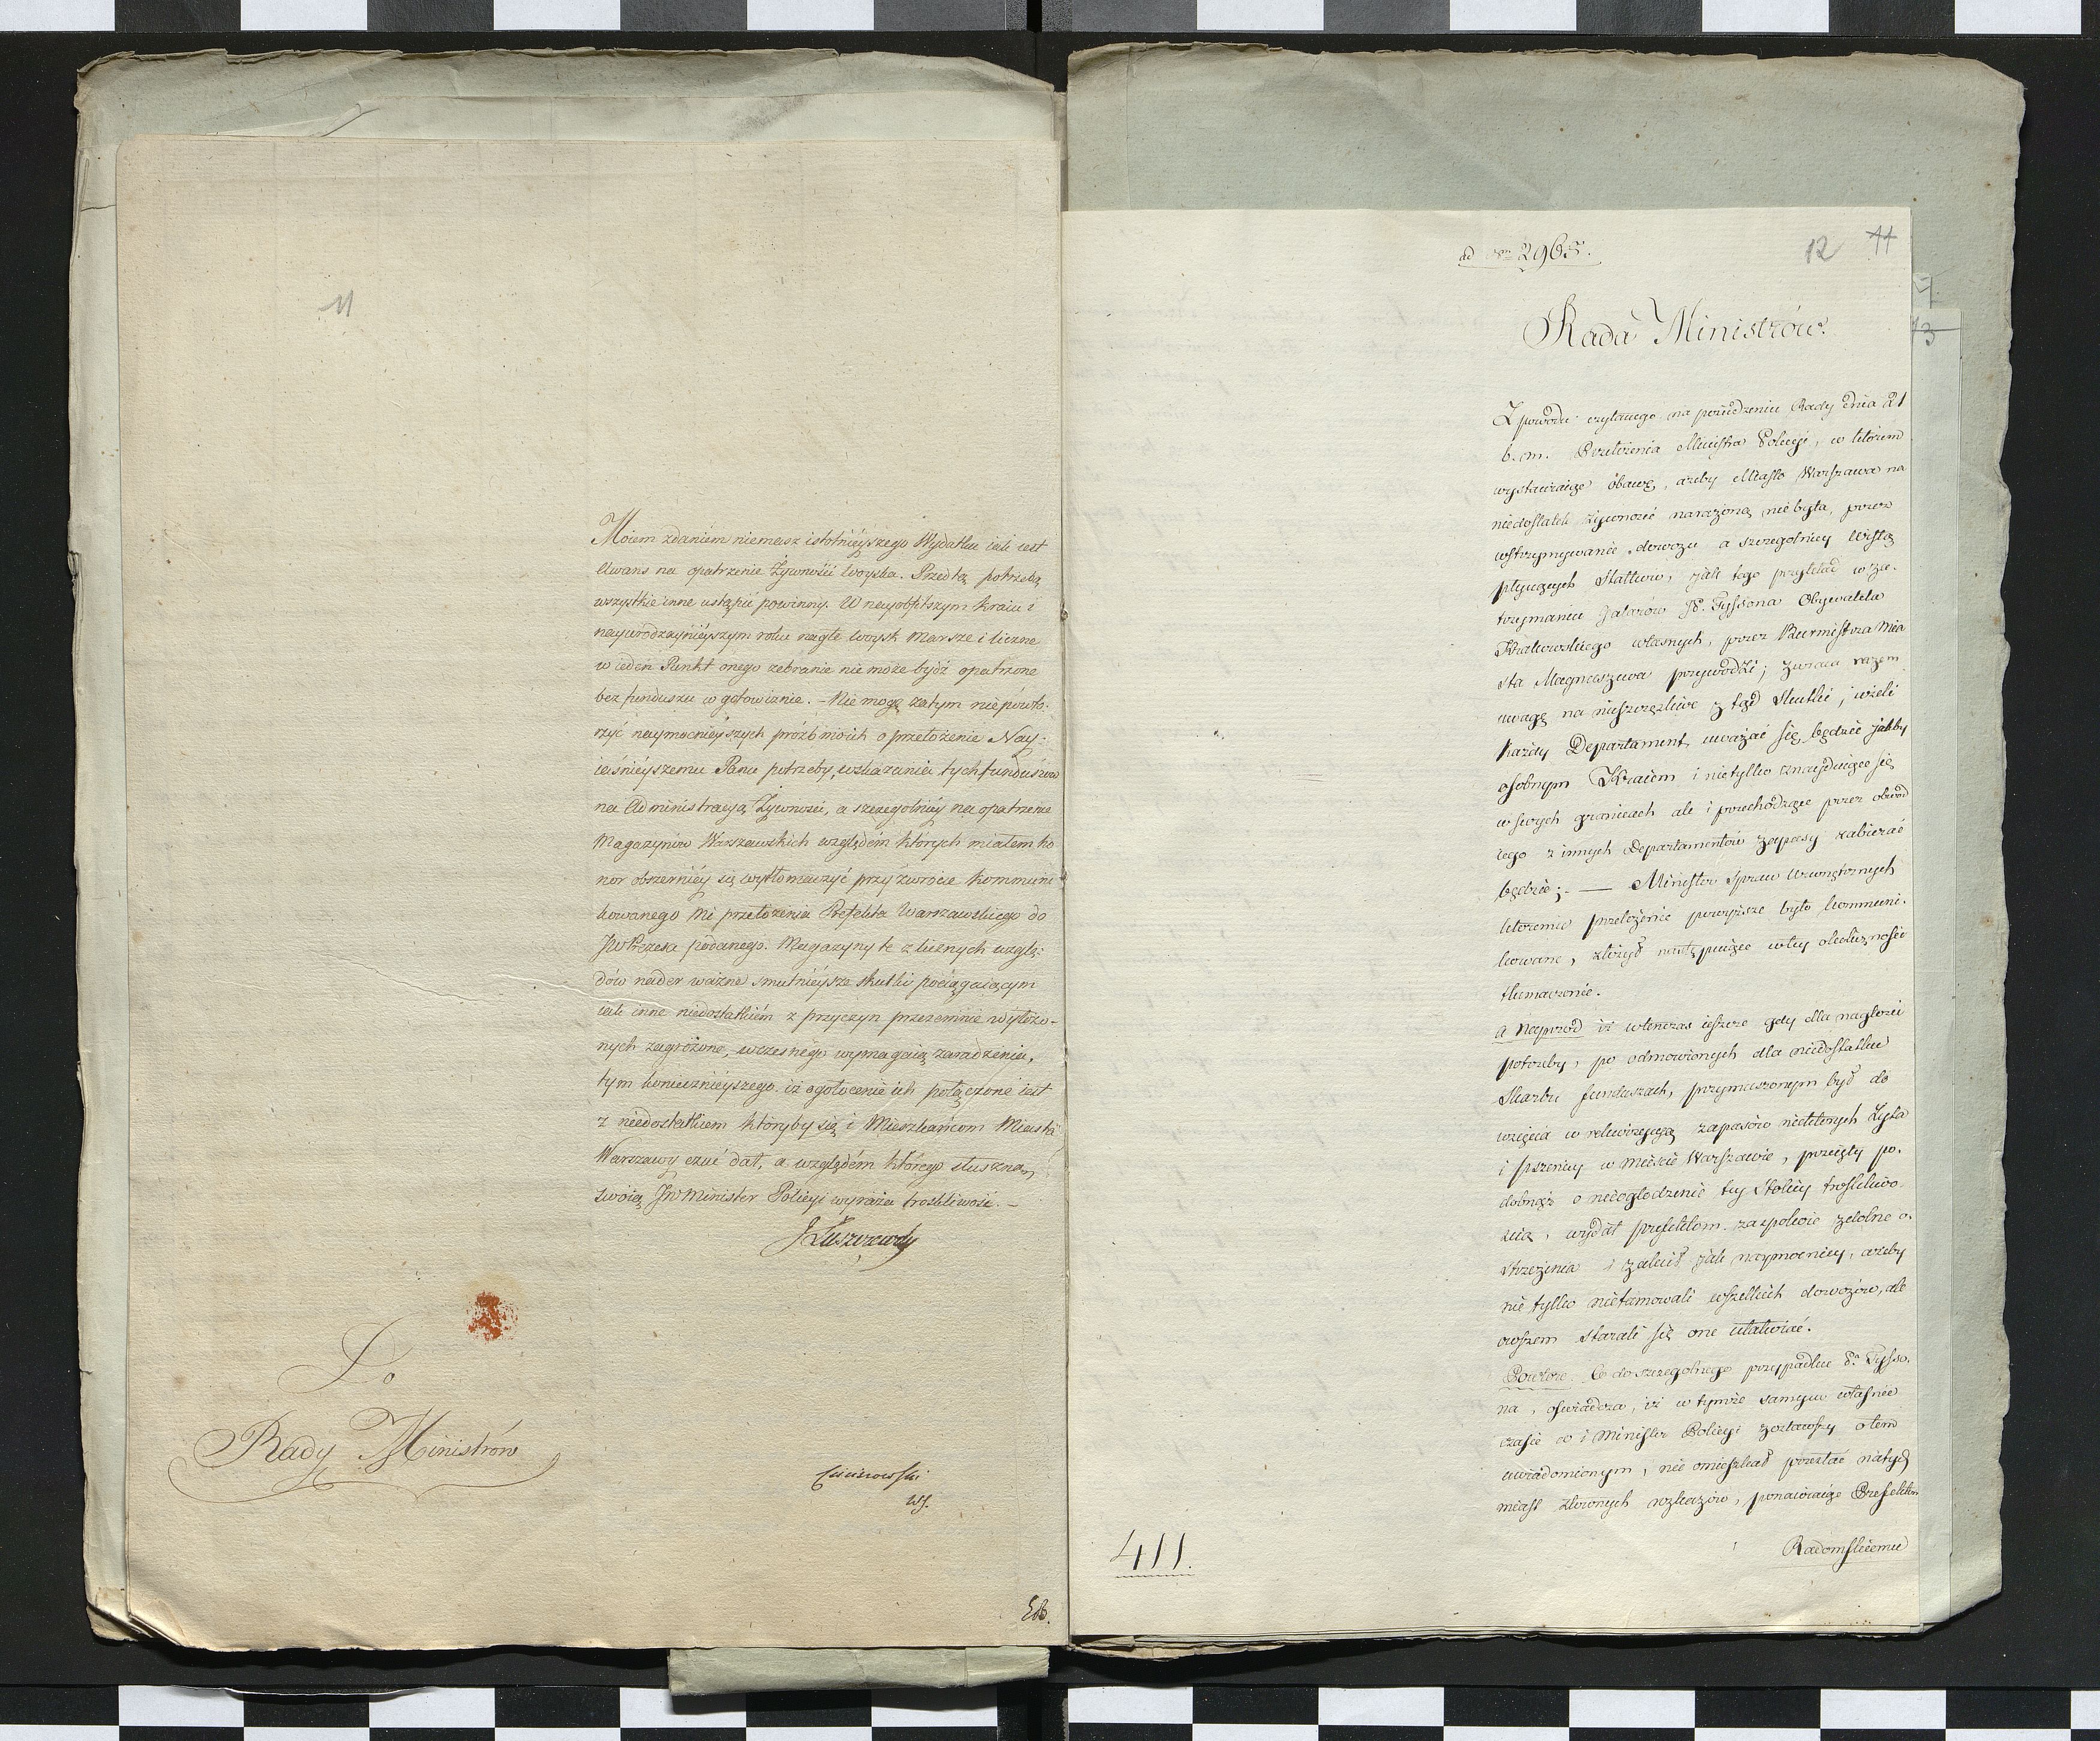 11
Moiem zdaniem niemasz istotnieyszego Wydatku iak iest
Awans na opatrzenie Żywności woyska. Przed tą potrzebą
wszystkie inne ustąpić powinny. W nayobfitszym kraiu i
nayurodzaynieyszym roku nagłe woysk marsze i liczne
w ieden Punkt onego zebranie nie może bydź opatrzone
bez funduszu w gotowiznie. – Nie mogę zatym nie powtó-
rzyć naymocnieyszych próźb moich o przełożenie Nay-
iaśnieyszemu Panu potrzeby, wskazania tych funduszów
na Administracyą Żywności, a szczególniey na opatrzenie
Magazynów Warszawskich względem których miałem ho
nor obszerniey się wytłomaczyć przy zwrócie kommuni
kowanego mi przełożenia Prefekta Warszawskiego do
JW Prezesa podanego. Magazyny te z licznych wzglę-
dów nader ważne smutnieysze skutki pociągaiącym
iak inne niedostatkiem z przyczyn przezemnie wyłożo-
nych zagrożone, wczesnego wymagaią zaradzenia,
tym koniecznieyszego iż ogołocenie ich połączone iest
z niedostatkiem któryby się i Mieszkańcom Miasta
Warszawy czuć dał, a względem którego słuszną
swoią JW Minister Policyi wyraża troskliwość. –
J Łuszczewsky
Do
Rady Ministrów
WS.
ad Nrm 2965.
12 11
13
Rada Ministrów.
Z powodu czytanego na posiedzeniu Rady dnia 21
b. m. Przełożenia Ministra Policyi, w którem
wystawiaiąc obawę, ażeby Miasto Warszawa na
niedostatek żywności narażoną nie była, przez
wstrzymywanie dowozu a szczególniey Wisłą
płynących statków, jak tego przykład w za-
trzymaniu Galarów P. Tyssona Obywatela
Krakowskiego własnych, przez Burmistrza Mia
sta Magnuszewa przywodzi; zwraca razem
uwagę na nieszczęśliwe ztąd skutki, ieżeli
każdy Departament uważać się będzie jakby
osobnym Kraiem i nietylko znayduiące się
w swych granicach ale i przechodzące przez obwód
iego z innych Departamentów zapasy zabierać
będzie; — Minister Spraw Wewnętrznych
któremu przełożenie powyższe było kommuni-
kowane, złożył następuiące w tey okoliczności
tłumaczenie.
a Naprzod iż wtenczas ieszcze gdy dla nagłości
potrzeby, po odmowionych dla niedostatku
Skarbu funduszach, przymuszonym był do
wzięcia w rekwizycyą zapasów niektórych Żyta
i pszenicy w Mieście Warszawie, przeięty po-
dobnąż o nieogłodzenie tey Stolicy troskliwo-
ścią, wydał prefektom zaspolcie zdolne o-
strzeżenia i zalecił jak naymocniey, ażeby
nie tylko nietamowali wszelkich dowozów, ale
owszem starali się one ułatwiać.
Powtóre Co do szczególnego przypadku P. Tysso-
na, oświadcza, iż w tymże samym własnie
czasie co i Minister Policyi zostawszy o tem
uwiadomionym, nie omieszkał przesłać natych
miast stosownych rozkazów, ponawiaiąc Prefektom
Radomskiemu
411.